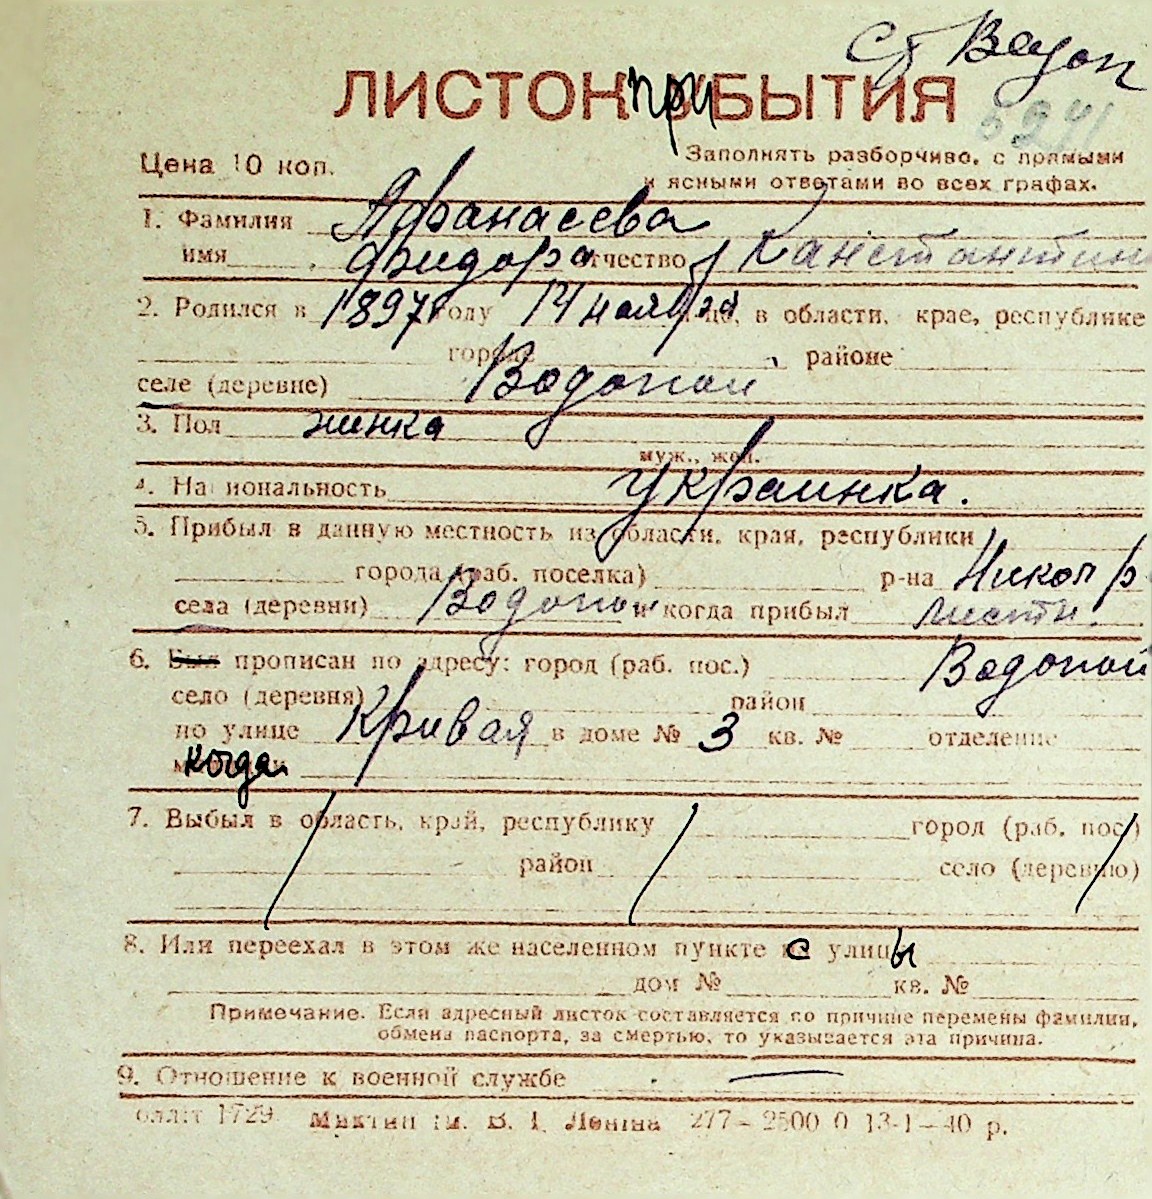 Ст Водоп
ЛИСТОК ПриБЫТИЯ
5241
Цена 10 коп.
Заполнять разборчиво, с прямыми
и ясными ответами во всех графах.
1. Фамилия Афанасева
имя Фидора отчество Канстантин
2. Родился в 1897 году 14 ноября, в области, крае, республике
городе районе
селе (деревне) Водопои
3. Пол жинка
муж., жен.
4. Национальность украинка.
5. Прибыл в данную местность из области, края, республики
города (раб. поселка) р-на Никоп р
села (деревни) Водопои и когда прибыл
6. Был прописан по адресу: город (раб. пос.) Водопой
село (деревня) район
по улице Кривая в доме № 3 кв. № отделение
когда
7. Выбыл в область, край, республику город (раб. пос.)
район село (деревню)
8. Или переехал в этом же населенном пункте с улицы
дом № кв. №
Примечание. Если адресный листок составляется по причине перемены фамилии,
обмена паспорта, за смертью, то указывается эта причина.
9. Отношение к военной службе —
1729 ім. В. І. Леніна 277 – 2500 0 13-1-40 р.